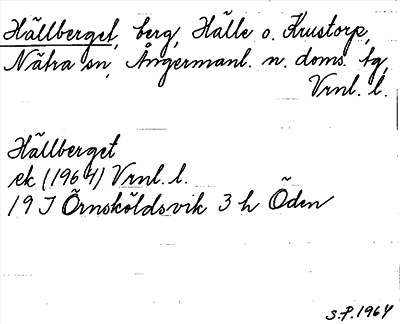 Hällberget, berg, Hälle o. Krustorp,
Nätra sn, Ångermanl. n. doms. tg,
Vrnl. l.
Hällberget
ek (1964) Vrnl. l.
19 J Örnsköldsvik 3 h Öden
S.P. 1964